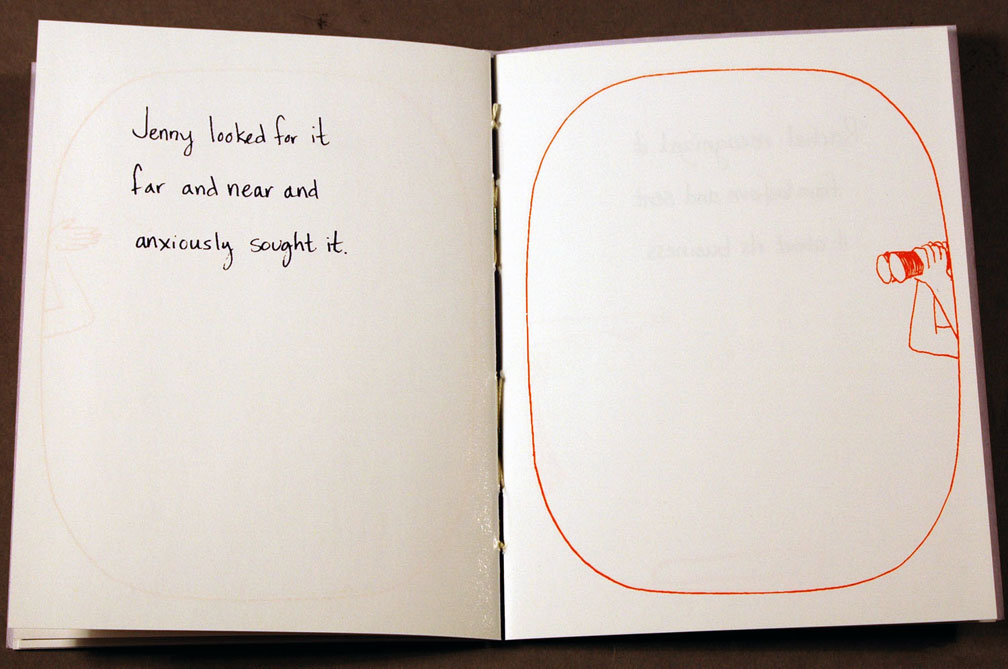 Jenny looked for it
far and near and
anxiously sought it.